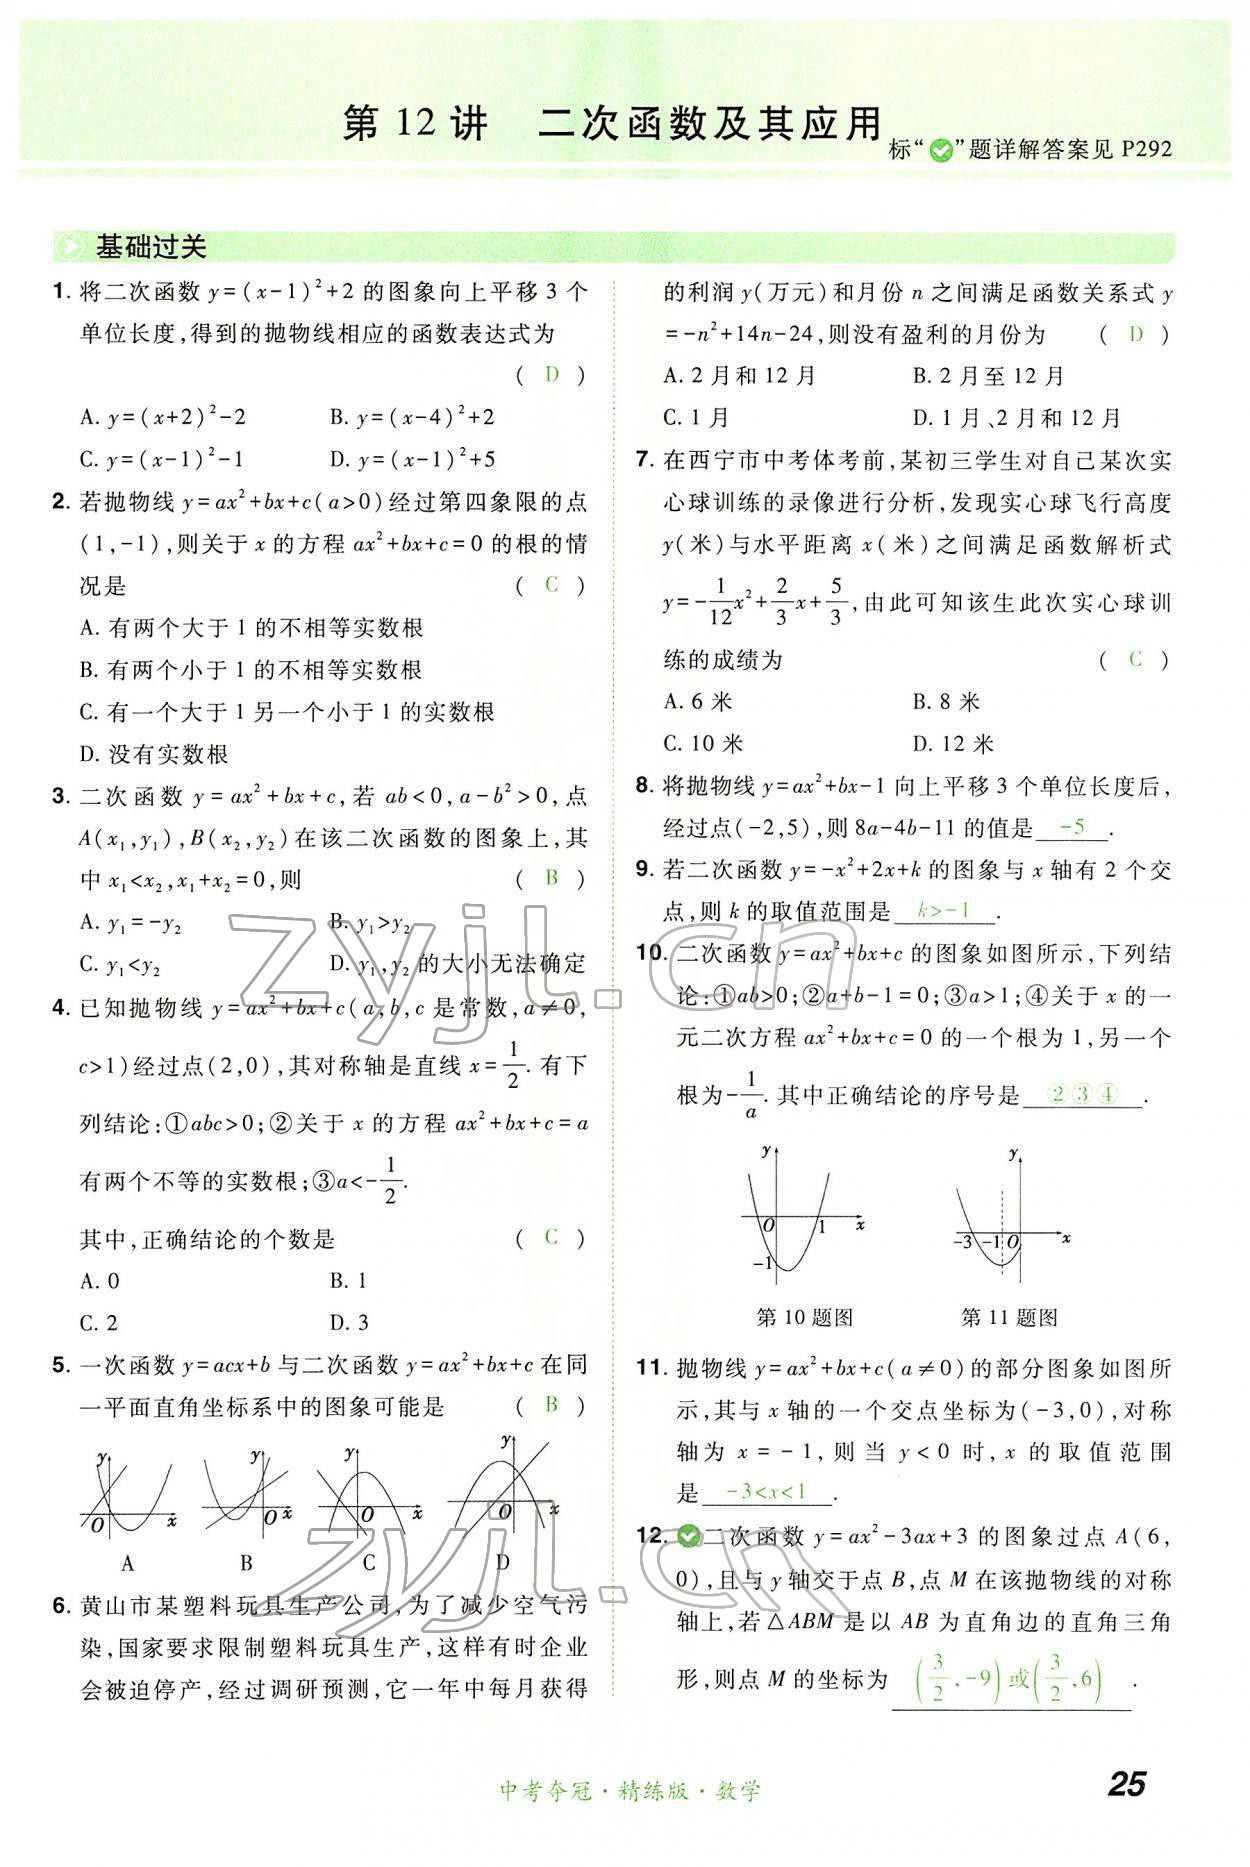 第12讲 二次函数及其应用
标“✓”题详解答案见 P292
基础过关
1. 将二次函数 y=(x-1)²+2 的图象向上平移 3 个
单位长度,得到的抛物线相应的函数表达式为
( D )
A. y=(x+2)²-2 B. y=(x-4)²+2
C. y=(x-1)²-1 D. y=(x-1)²+5
2. 若抛物线 y=ax²+bx+c(a>0)经过第四象限的点
(1,-1),则关于 x 的方程 ax²+bx+c=0 的根的情
况是 ( C )
A. 有两个大于 1 的不相等实数根
B. 有两个小于 1 的不相等实数根
C. 有一个大于 1 另一个小于 1 的实数根
D. 没有实数根
3. 二次函数 y=ax²+bx+c,若 ab<0,a-b²>0,点
A(x₁,y₁),B(x₂,y₂)在该二次函数的图象上,其
中 x₁<x₂,x₁+x₂=0,则 ( B )
A. y₁=-y₂ B. y₁>y₂
C. y₁<y₂ D. y₁,y₂ 的大小无法确定
4. 已知抛物线 y=ax²+bx+c(a,b,c 是常数,a≠0,
c>1)经过点(2,0),其对称轴是直线 x=1/2. 有下
列结论:①abc>0;②关于 x 的方程 ax²+bx+c=a
有两个不等的实数根;③a<-1/2.
其中,正确结论的个数是 ( C )
A. 0 B. 1
C. 2 D. 3
5. 一次函数 y=acx+b 与二次函数 y=ax²+bx+c 在同
一平面直角坐标系中的图象可能是 ( B )
y y y y
O x O x O x O x
A B C D
6. 黄山市某塑料玩具生产公司,为了减少空气污
染,国家要求限制塑料玩具生产,这样有时企业
会被迫停产,经过调研预测,它一年中每月获得
的利润 y(万元)和月份 n 之间满足函数关系式 y
=-n²+14n-24,则没有盈利的月份为 ( D )
A. 2 月和 12 月 B. 2 月至 12 月
C. 1 月 D. 1 月、2 月和 12 月
7. 在西宁市中考体考前,某初三学生对自己某次实
心球训练的录像进行分析,发现实心球飞行高度
y(米)与水平距离 x(米)之间满足函数解析式
y=-1/12x²+2/3x+5/3,由此可知该生此次实心球训
练的成绩为 ( C )
A. 6 米 B. 8 米
C. 10 米 D. 12 米
8. 将抛物线 y=ax²+bx-1 向上平移 3 个单位长度后,
经过点(-2,5),则 8a-4b-11 的值是 -5 .
9. 若二次函数 y=-x²+2x+k 的图象与 x 轴有 2 个交
点,则 k 的取值范围是 k>-1 .
10. 二次函数 y=ax²+bx+c 的图象如图所示,下列结
论:①ab>0;②a+b-1=0;③a>1;④关于 x 的一
元二次方程 ax²+bx+c=0 的一个根为 1,另一个
根为-1/a. 其中正确结论的序号是 ②③④ .
y y
O 1 x -3 -1 O x
-1
第 10 题图 第 11 题图
11. 抛物线 y=ax²+bx+c(a≠0)的部分图象如图所
示,其与 x 轴的一个交点坐标为(-3,0),对称
轴为 x=-1,则当 y<0 时,x 的取值范围
是 -3<x<1 .
12. ✓二次函数 y=ax²-3ax+3 的图象过点 A(6,
0),且与 y 轴交于点 B,点 M 在该抛物线的对称
轴上,若△ABM 是以 AB 为直角边的直角三角
形,则点 M 的坐标为 (3/2,-9)或(3/2,6) .
中考夺冠·精练版·数学
25
zyjl.cn
zyjl.cn